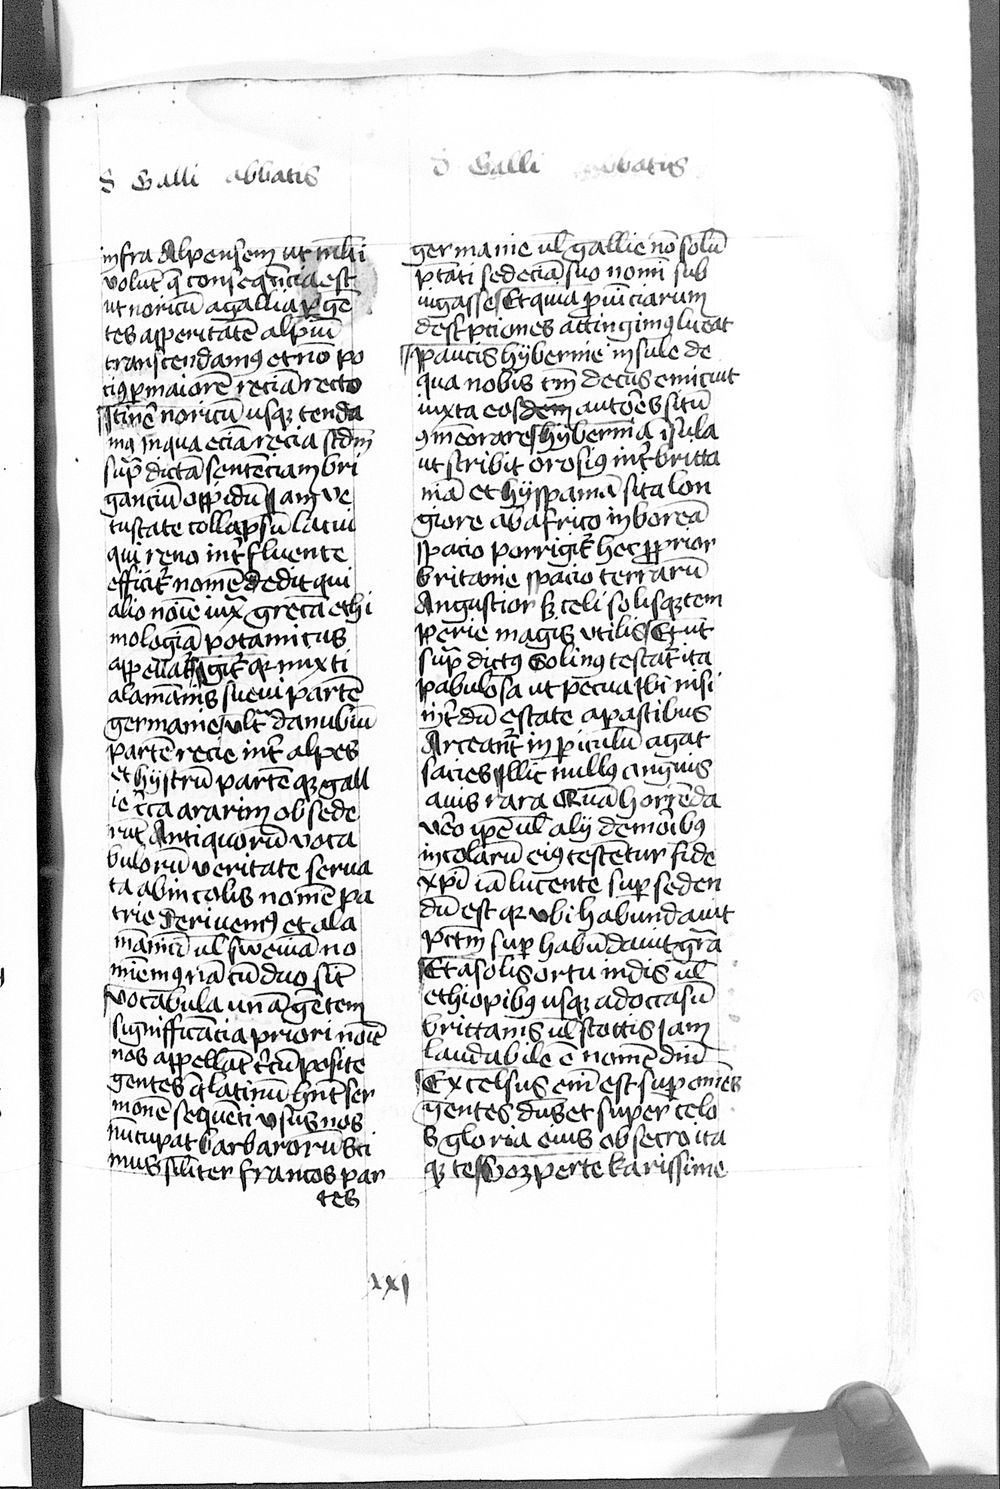 S Galli abbatis
S Galli abbatis
infra Alpensem ut nichi
volūt q̄ conseq̄ncia est
ut noricū a gallia ꝑ gē
tes asperitatē alpiū
transcendamꝰ et nō po
ciꝰ ꝑ maiorē reciā recto
itinē noricū usqꝫ tenda
mꝰ in qua eciā recia scdm̄
sup̄ dictā sentēciam bri
ganciū oppidū iam ve
tustate collapsū lacui
qui reno int̄ fluente
efficit̄ nomē dedit qui
alio noīe iux̄ grecā ethi
mologiā potamicus
appellat̄ Igit̄ qꝛ mixti
alamānis suevi partē
germanie ult̄ danubiū
partē recie int̄ alpes
et hystrū partē qꝫ gall
ie c̄ca ararim obsede
rūt Antiquorū voca
bulorū veritate serua
ta ab incolis nomē pa
trie deriuemꝰ et ala
māniā ul̄ sweuiā no
mīemꝰ nā cū duo sūt
vocabula unā gētem
significācia priori noīe
nos appellāt c̄cū posite
gentes q̄ latinū hn̄t ser
monē sequēti usus nos
nūcupat barbarorū Esti
mus silīter francos par
tes
germanie ul̄ gallie nō solū
ptāti sed eciā suo nomī sub
iugasse Et quia ꝓuīciarum
descͥptiones attingimꝰ luceat
paucis hyberine insule de
qua nobis tm̄ decus emicuit
iuxta eosdem auctōes sitū
ꝯmēorare hybernia īsula
ut scribit orosiꝰ int̄ britta
niā et hyspaniā sita lon
giore ab africo in boreā
spacio porrigit̄ hec ꝓprior
britanie spacio terrarū
Angustior sꝫ celi solisqꝫ tem
perie magis vtilis Et ut
sup̄ dictꝰ Solinꝰ testat̄ ita
pabulosa ut pecua ibi nisi
int̄dū estate a pastibus
Arceant̄ in ꝑiculū agat
sacies Illic nullꝰ anguis
auis rara Quā horrēda
vēo ipē ul̄ alij de morībꝰ
incolarū eiꝰ testētur fide
xp̄i iā lucente super seden
dū est qꝛ vbi habundauit
pctm̄ super habūdauit gr̄a
Et a solis ortu indis ul̄
ethiopibꝰ usqꝫ ad occasū
brittanis ul̄ scottis Iam
laudabile ē nomē dn̄i
Excelsus eīm est super omēs
gentes dn̄s et super celo
s gloria eius obsecro ita
qꝫ te Gozperte karissime
xxj